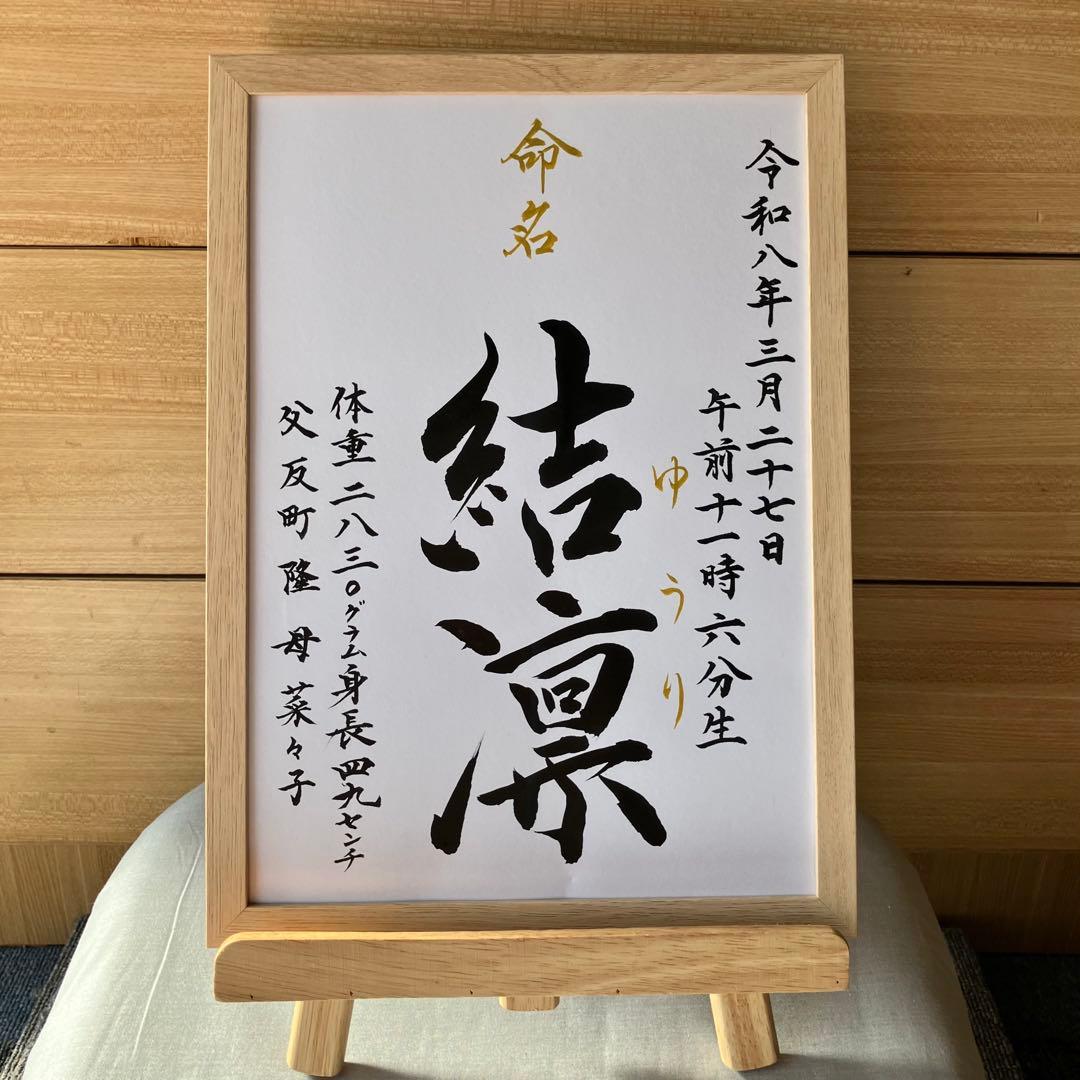 令和八年三月二十七日
午前十一時六分生
命名
結凛
ゆうり
体重二八三〇グラム身長四九センチ
父反町隆 母菜々子